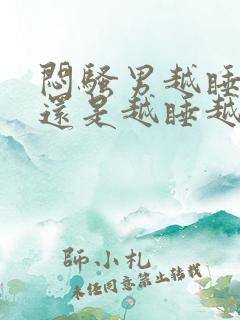 悶騷男越睡
還是越睡越
師小札
未經同意禁止轉載